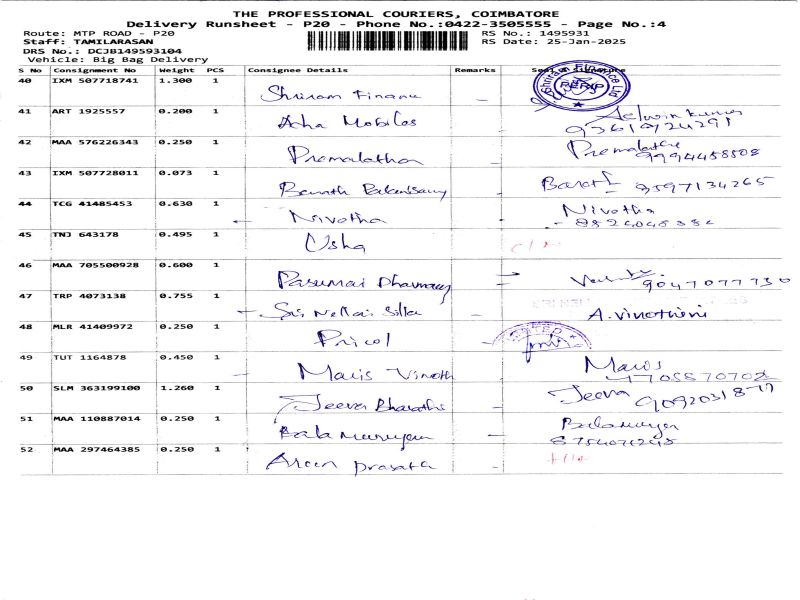 THE PROFESSIONAL COURIERS, COIMBATORE
Delivery Runsheet - P20 - Phone No.:0422-3505555 - Page No.:4
Route: MTP ROAD - P20
RS No.: 1495931
Staff: TAMILARASAN
RS Date: 25-Jan-2025
DRS No.: DCJB149593104
Vehicle: Big Bag Delivery
S No Consignment No Weight PCS Consignee Details Remarks
40 IXM 507718741 1.300 1 Shriram Finance
41 ART 1925557 0.200 1 Asha Mobiles
42 MAA 576226343 0.250 1 Premalatha Premalatha 9994458508
43 IXM 507728011 0.073 1 Barath 9597134265
44 TCG 41485453 0.630 1 Nivetha Nivetha
45 TNJ 643178 0.495 1 Usha
46 MAA 705500928 0.600 1 Pasumai 9047077730
47 TRP 4073138 0.755 1 Sri Nellai Silks A. Vinothini
48 MLR 41409972 0.250 1 Pricol
49 TUT 1164878 0.450 1 Maris Vinoth Maris 7705570702
50 SLM 363199100 1.260 1 Jeeva Bharathi Jeeva 9092031877
51 MAA 110887014 0.250 1 Bala Murugan Balamurugan
52 MAA 297464385 0.250 1 Arun Prasath